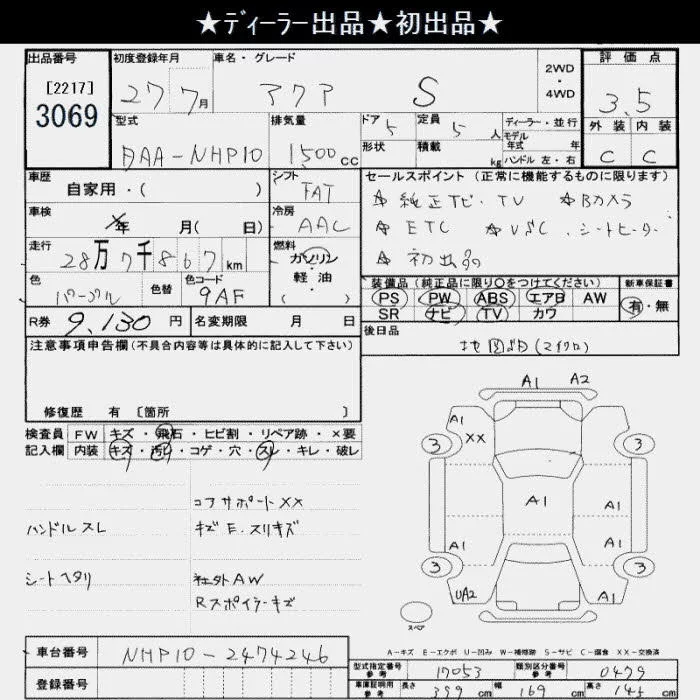 ★ディーラー出品★初出品★
出品番号 初度登録年月 車名・グレード 2WD・4WD 評価点
[2217] 27 7月 アクア S 3.5
3069
型式 排気量 ドア 5 定員 5人 ディーラー・並行 外装 内装
DAA-NHP10 1500cc 形状 積載 kg モデル年式 年 C C
ハンドル左・右
車歴 シフト セールスポイント(正常に機能するものに限ります)
自家用・( ) FAT ☆純正ナビ・TV ☆Bカメラ
車検 年 月( 日) 冷房 AAC ☆ETC ☆VSC、シートヒーター
走行 28万7千867km 燃料 ガソリン ☆初出品
軽・油
( )
色 色替 色コード 装備品(純正品に限り○をつけてください) 新車保証書
パープル 9AF PS PW ABS エアB AW 有・無
SR ナビ TV カワ
R券 9,130円 名変期限 月 日 後日品
注意事項申告欄(不具合内容等は具体的に記入して下さい)
修復歴 有 [箇所 ]
検査員 FW キズ・飛石・ヒビ割・リペア跡・×要
記入欄 内装 キズ・汚れ・コゲ・穴・スレ・キレ・破レ
コアサポートXX
ハンドルスレ キズE.スリキズ
シートヘタリ 社外AW
Rスポイラーキズ
A1 A2
A1
XX
3 3
A1
A1
A1 A1
3 3
UA2 A1
スペア
A-キズ E-エクボ U-凹み W-補修跡 S-サビ C-腐食 XX-交換済
車台番号 NHP10-2474246
型式指定番号 参考 17053 類別区分番号 参考 0479
登録番号
車庫証明用 参考 長さ 399cm 幅 169cm 高さ 145cm